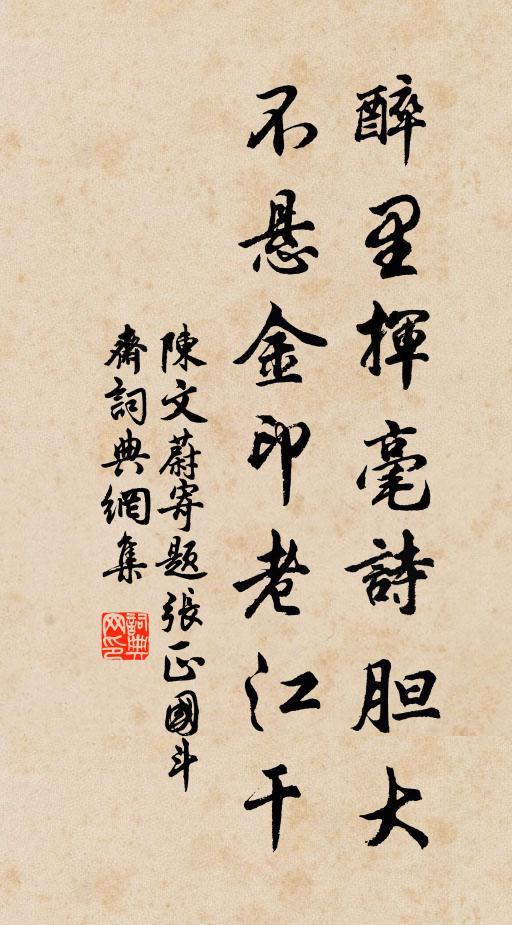 醉里揮毫詩胆大
不悬金印老江干
陳文蔚寄题張正國斗
齋詞典網集
詞典网印